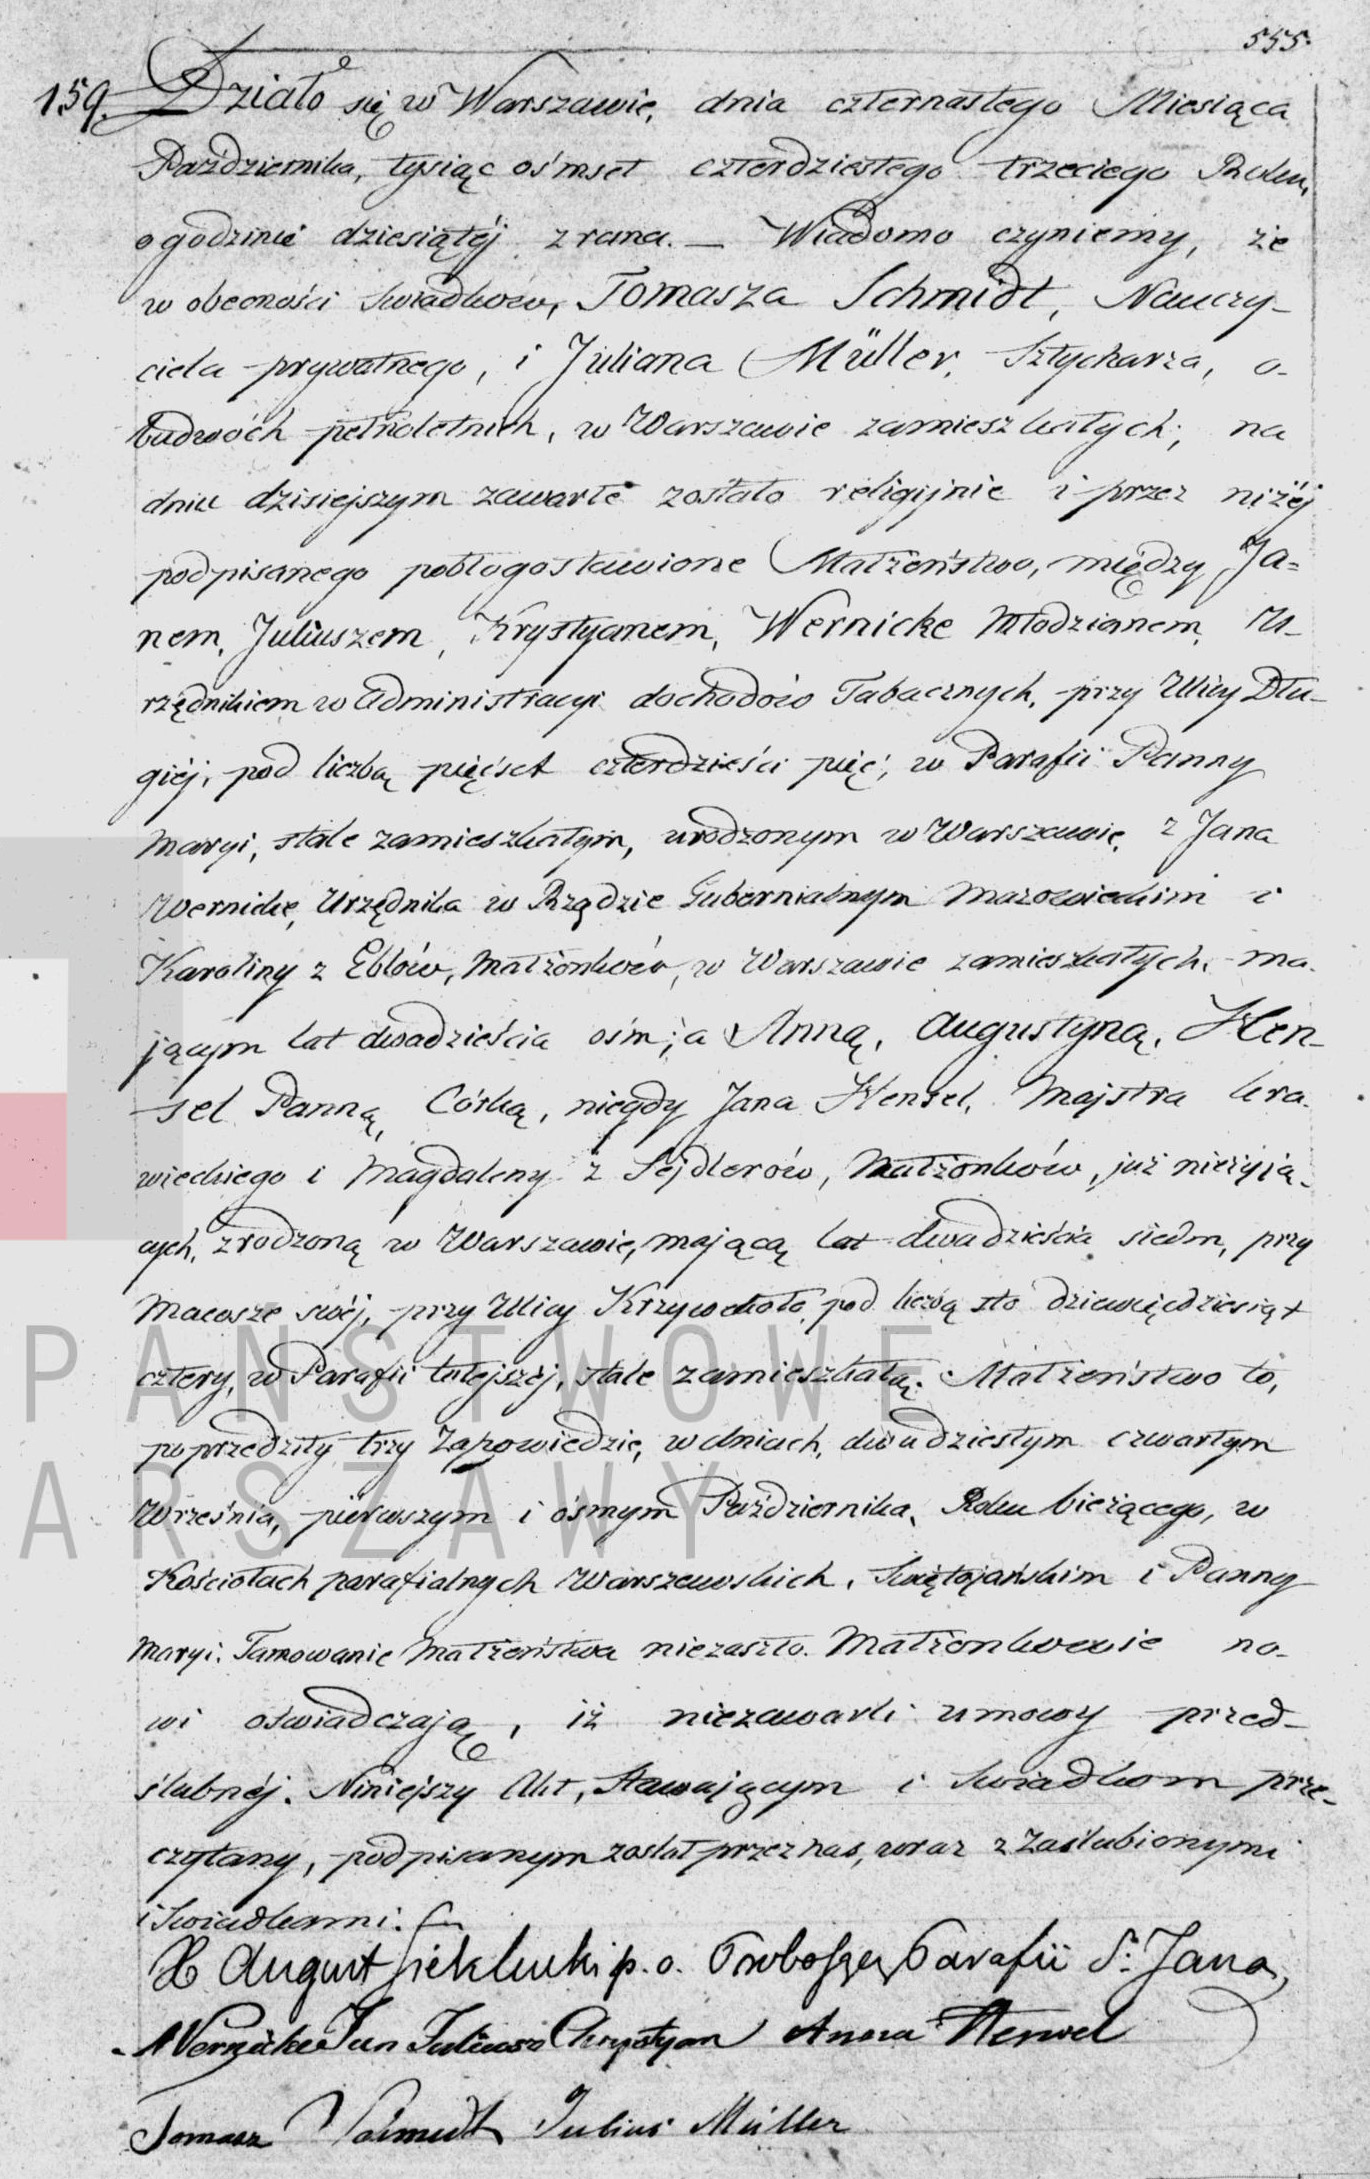 555.
159. Działo się w Warszawie, dnia czternastego Miesiąca
Października, tysiąc ośmset czterdziestego trzeciego Roku,
o godzinie dziesiątéj z rana. — Wiadomo czyniemy, że
w obecności Swiadków, Tomasza Schmidt, Nauczy-
ciela prywatnego, i Juliana Müller, Sztycharza, o-
budwóch pełnoletnich, w Warszawie zamieszkałych; na
dniu dzisiejszym zawarte zostało religijnie i przez niżéj
podpisanego pobłogosławione Małżeństwo, między Ja-
nem, Juliuszem, Krystyanem, Wernicke Młodzianem, U-
rzędnikiem w Administracyi dochodów Tabacznych, przy Ulicy Dłu-
giéj, pod liczbą pięćset czterdzieści pięć, w Parafii Panny
Maryi, stale zamieszkałym, urodzonym w Warszawie, z Jana
Wernicke, Urzędnika w Rządzie Gubernialnym Mazowieckim i
Karoliny z Eblów, Małżonków, w Warszawie zamieszkałych, ma-
jącym lat dwadzieścia ośm; a Anną, Augustyną, Hen-
sel Panną, Córką, niegdy Jana Hensel, Majstra kra-
wieckiego i Magdaleny z Sejdlerów, Małżonków, już nieżyją-
cych, zrodzoną w Warszawie, mającą lat dwadzieścia siedm, przy
Macosze swéj, przy Ulicy Krzywe koło, pod liczbą sto dziewięćdziesiąt
cztery, w Parafii tutejszéj, stale zamieszkałą. Małżeństwo to,
poprzedziły trzy Zapowiedzie, w dniach, dwudziestym czwartym
Września, pierwszym i ósmym Października, Roku bieżącego, w
Kościołach parafialnych Warszawskich, Swiętojańskim i Panny
Maryi. Tamowanie Małżeństwa niezaszło. Małżonkowie no-
wi oświadczają, iż niezawarli umowy przed-
ślubnéj. Niniejszy Akt, Stawającym i Swiadkom prze-
czytany, podpisanym został przez nas, wraz z Zaślubionymi
i Swiadkami.
X August Sieklucki p. o. Proboszcza Parafii S. Jana,
Wernicke Jan Juliusz Chrystyan Anna Hensel
Tomasz Schmidt Julius Müller
PAŃSTWOWE
ARSZAWY